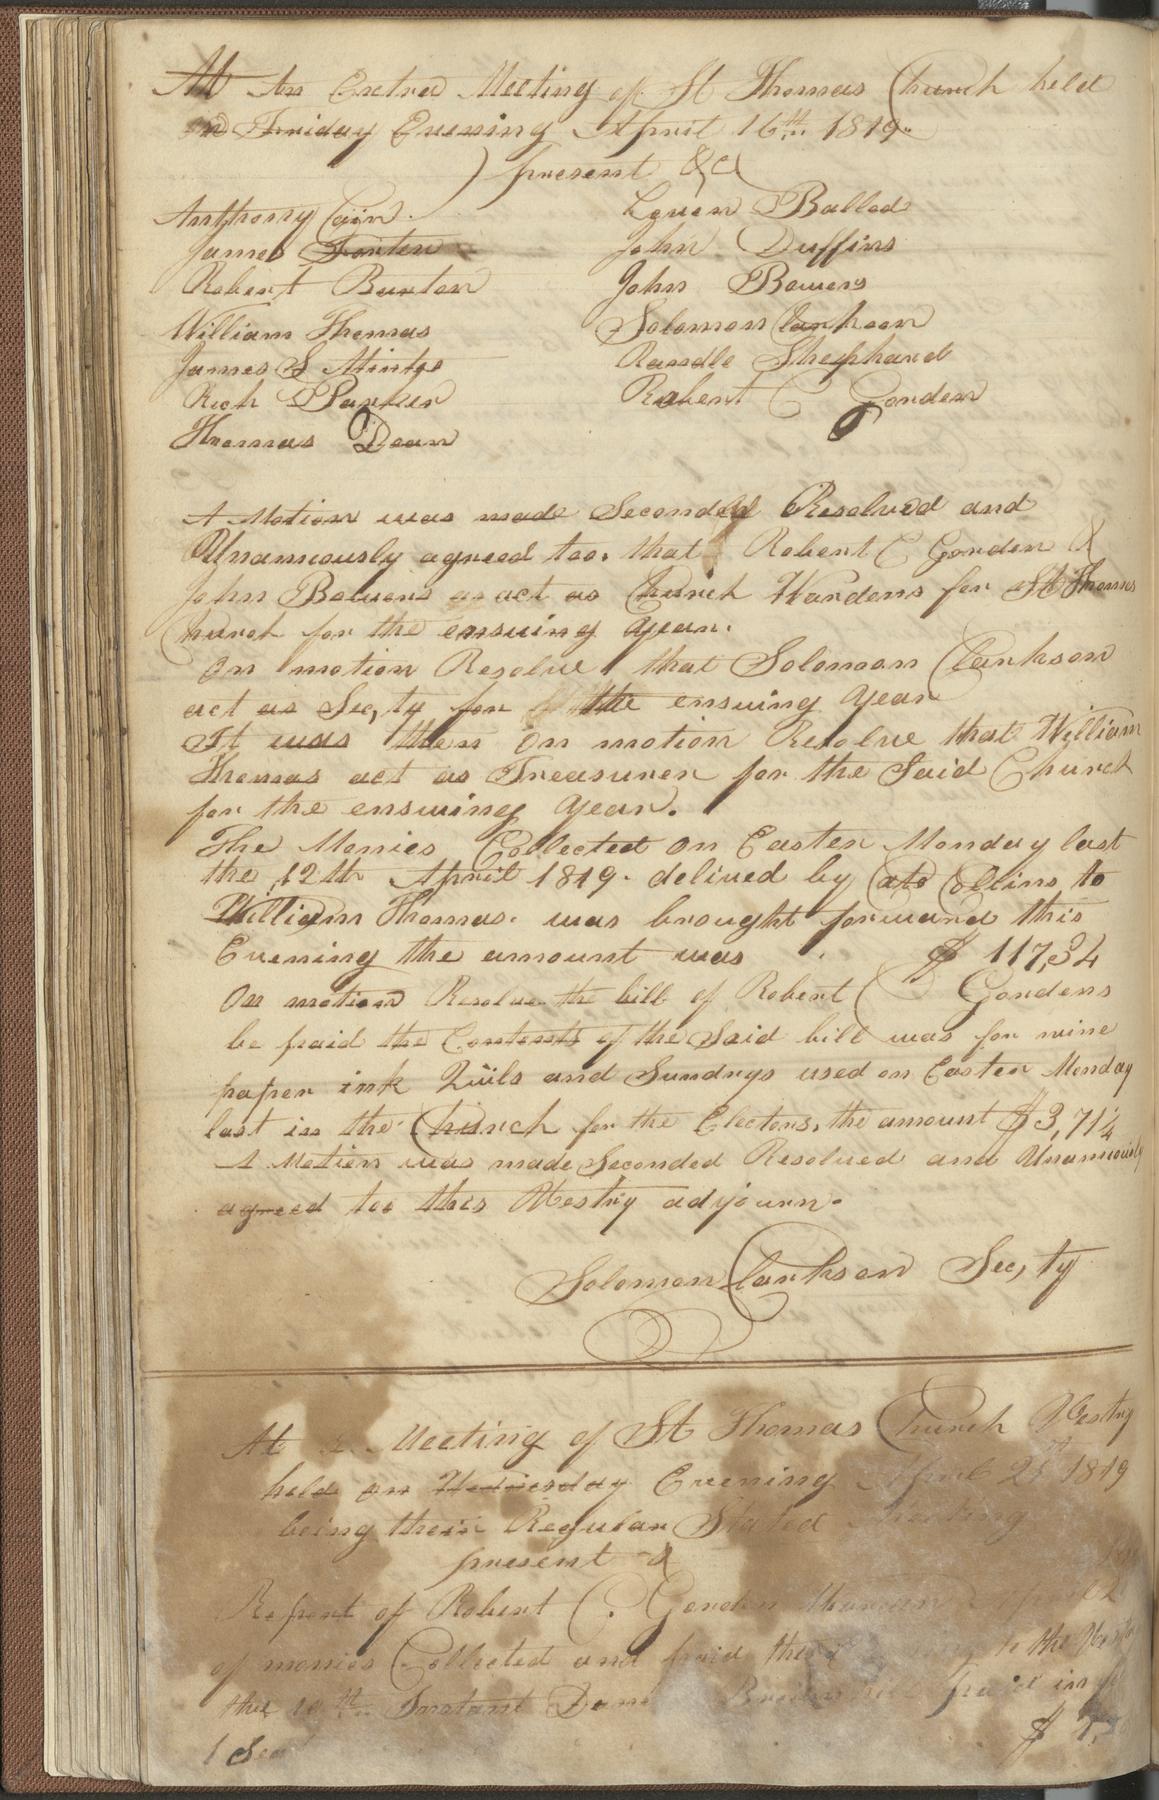 At An Extra Meeting of St Thomas Church held
on Friday Evening April 16th 1819.
present &c
Anthony Cain.
James Forten
Robert Burton
William Thomas
James S Mintys
Rich Parker
Thomas Dean
Leven Balled
John Duffins
John Bowers
Solomon Clarkson
Randle Shephard
Robert C Gorden
A Motion was made Seconded Resolved and
Unamously agreed too. that Robert C Gorden &
John Bowers as act as Church Wardens for St Thomas
Church for the ensuing year.
On motion Resolve that Solomon Clarkson
act as Sec,ty for the ensuing year
It was then On motion Resolve that William
Thomas act as Treasurer for the Said Church
for the ensuing year.
The Monies Collected on Easter Monday last
the 12th April 1819. delived by Cato Collins to
William Thomas. was brought forward this
Evening the amount was $ 117,34
On motion Resolve the bill of Robert C Gordens
be paid the Contents of the Said bill was for wine
paper ink Quils and Sundrys used on Easter Monday
last in the Church for the Electons, the amount $3,71¼
A Motion was made Seconded Resolved and Unamously
agreed too this Vestry adjourn.
Solomon Clarkson Sec,ty
At a Meeting of St Thomas Church Vestry
held on Wednesday Evening April 21 1819
being their Regular Stated Meeting
present &
Report of Robert C. Gorden
of monies Collected and paid to the
the 10th Instant paid in
$